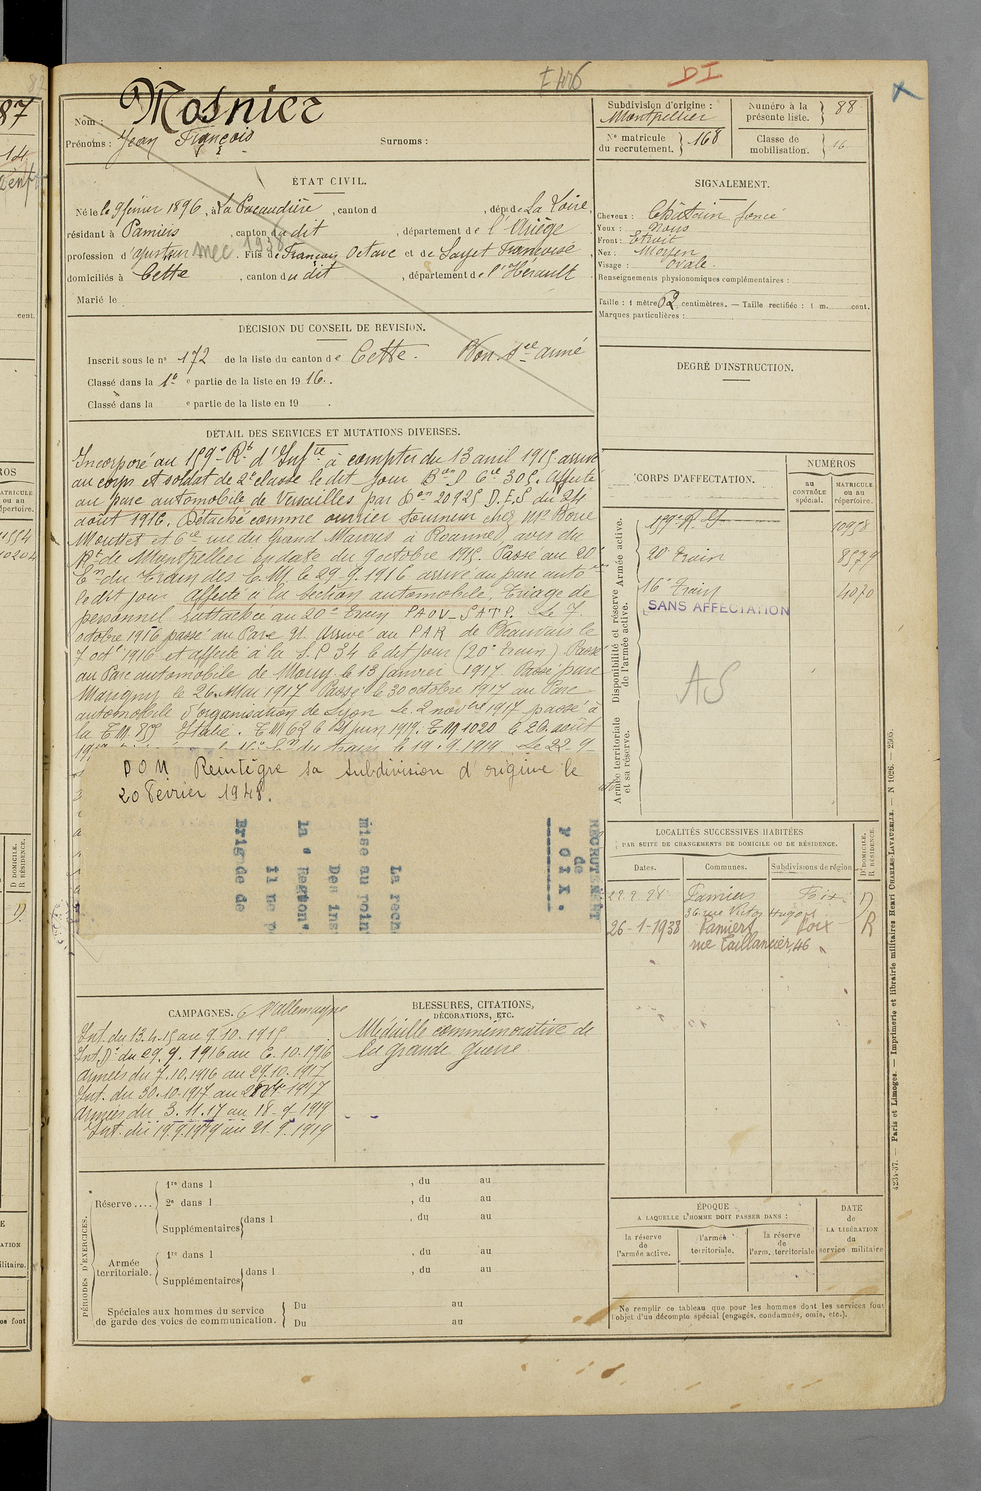 E 406
DI
Nom : Mosnier
Prénoms : Jean François Surnoms :
Subdivision d'origine : Montpellier
Numéro à la présente liste. 88
N° matricule du recrutement. 168
Classe de mobilisation. 16
ÉTAT CIVIL.
Né le 9 février 1896, à La Pacaudière, canton d , dép. de La Loire,
résidant à Pamiers, canton du dit, département de l'Ariège,
profession d'ajusteur mec 1938. Fils de François Octave et de Sauzet Françoise
domiciliés à Cette, canton du dit, département de l'Hérault
Marié le
SIGNALEMENT.
Cheveux : Châtain foncé
Yeux : Noirs
Front : Etroit
Nez : Moyen
Visage : Ovale.
Renseignements physionomiques complémentaires :
Taille : 1 mètre 62 centimètres. — Taille rectifiée : 1 m. cent.
Marques particulières :
DÉCISION DU CONSEIL DE REVISION.
Inscrit sous le n° 172 de la liste du canton de Cette. Bon Sce armé
Classé dans la 1e partie de la liste en 1916.
Classé dans la e partie de la liste en 19 .
DEGRÉ D'INSTRUCTION.
DÉTAIL DES SERVICES ET MUTATIONS DIVERSES.
Incorporé au 159e Rt d'Infie à compter du 13 avril 1915 arrivé
au corps et soldat de 2e classe le dit jour. Affecté
au parc automobile de Versailles par Don 20925 D.E.S du 24
août 1916. Détaché comme ouvrier tourneur chez Mrs
Mouttet et Cie rue du Grand Marais à Roanne, avis du
Rt de Montpellier en date du 9 octobre 1915. Passé au 20e
Eon du Train des E.M. le 29-9-1916 arrivé au parc auto
le dit jour. Affecté à la Section automobile. Triage de
personnel rattachée au 20e Train. Le 7
octobre 1916 passé au Parc A. Arrivé au PAR de Beauvais le
7 oct 1916 et affecté à la S.P 34 le dit jour (20e Train) Passé
au Parc automobile de Mouy le 13 janvier 1917. Passé parc
Marigny le 26 Mai 1917 Passé le 30 octobre 1917 au Parc
automobile d'organisation de Lyon. Le 2 novbre 1917 passé à
la TM 89 Italie. TM 62 le 21 juin 1919. TM 1020 le 26 août
du train le 19.9.1919. Le 22-9-
DOM Réintègre sa subdivision d'origine le
20 Février 1948.
RECRUTEMENT
de
FOIX.
La rech
Des ins
mise au poin
la " Region"
il ne p
Brigade de
CORPS D'AFFECTATION.
NUMÉROS
au CONTRÔLE spécial.
MATRICULE ou au répertoire.
Armée active.
Disponibilité et réserve de l'armée active.
Armée territoriale et sa réserve.
159e R.I. 10958
20e Train 8577
16e Train 4070
SANS AFFECTATION
AS
LOCALITÉS SUCCESSIVES HABITÉES
PAR SUITE DE CHANGEMENTS DE DOMICILE OU DE RÉSIDENCE.
Dates. Communes. Subdivisions de région D DOMICILE. R RÉSIDENCE.
22.2.28 Pamiers Foix D
36 rue Victor Hugo
26-1-1938 Pamiers Foix R
rue Taillancier, 46
CAMPAGNES. c/ l'Allemagne
Int. du 13.4.15 au 9.10.1915
Int. do du 29.9.1916 au 6.10.1916
Armées du 7.10.1916 au 29.10.1917
Int. du 30.10.1917 au 2 Nov 1917
Armées du 3.11.17 au 18-9.1919
Int. du 19.9.1919 au 21.9.1919
BLESSURES, CITATIONS,
DÉCORATIONS, ETC.
Médaille commémorative de
la grande guerre
PÉRIODES D'EXERCICES.
Réserve....
1re dans l , du au
2e dans l , du au
Supplémentaires dans l , du au
Armée territoriale.
1re dans l , du au
Supplémentaires dans l , du au
Spéciales aux hommes du service de garde des voies de communication.
Du au
Du au
ÉPOQUE
A LAQUELLE L'HOMME DOIT PASSER DANS :
la réserve de l'armée active.
l'armée territoriale.
la réserve de l'arm. territoriale
DATE de LA LIBÉRATION du service militaire
Ne remplir ce tableau que pour les hommes dont les services font
l'objet d'un décompte spécial (engagés, condamnés, omis, etc.).
4234-37. — Paris et Limoges. — Imprimerie et librairie militaires Henri CHARLES-LAVAUZELLE. — N 1026. — 2505.